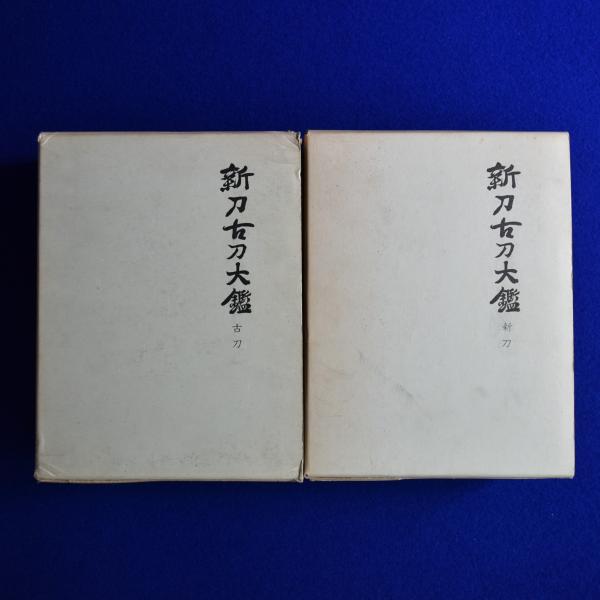 新刀古刀大鑑
古刀
新刀古刀大鑑
新刀